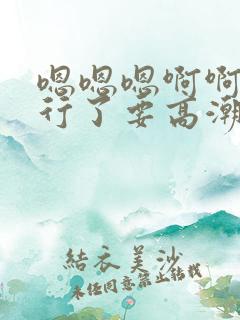 嗯嗯嗯啊啊
行了要高潮
結衣美沙
未任同意禁止转载